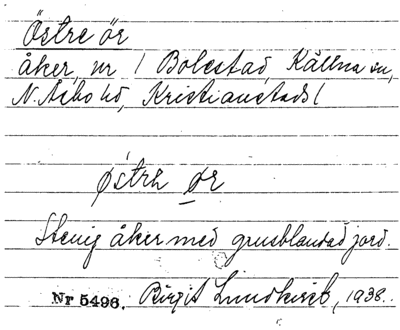 Östre ör
åker, nr 1 Bolestad, Källna sn,
N. Åsbo hd, Kristianstads l
østrə ør
Stenig åker med grusblandad jord.
Nr 5496. Birgit Lundkvist, 1938.